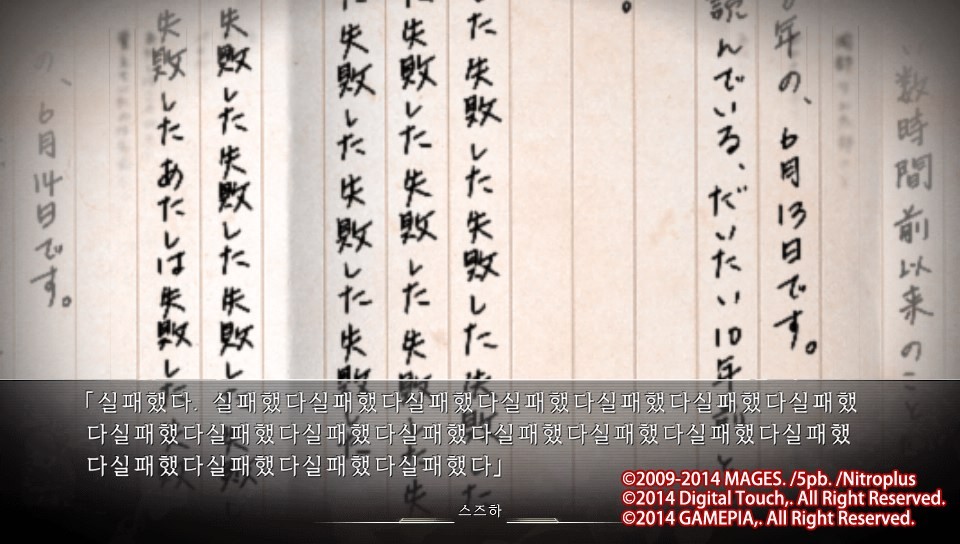 い数時間前以来のこと
6年の、6月13日です。
読んでいる、だいたい10年前と
。
た失敗した失敗した失敗した
た失敗した失敗した失敗した失
た失敗した失敗した失敗した
失敗した失敗した失敗した失敗
失敗したあたしは失敗した失
の、6月14日です。
「실패했다. 실패했다실패했다실패했다실패했다실패했다실패했다실패했
다실패했다실패했다실패했다실패했다실패했다실패했다실패했다실패했
다실패했다실패했다실패했다실패했다」
스즈하
©2009-2014 MAGES. /5pb. /Nitroplus
©2014 Digital Touch,. All Right Reserved.
©2014 GAMEPIA,. All Right Reserved.